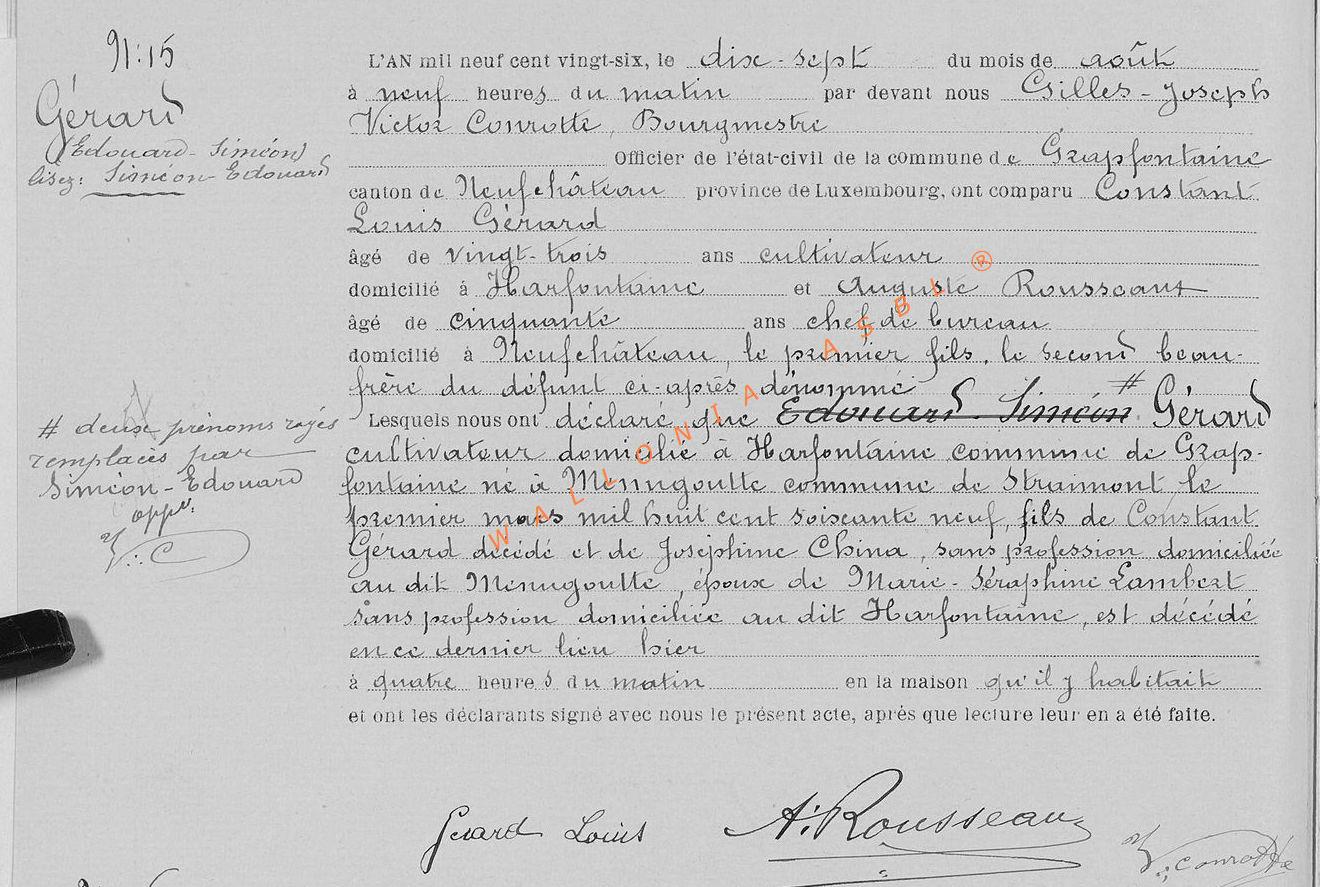 N: 15
Gérard
(Edouard-Siméon)
lisez: Siméon-Edouard
L'AN mil neuf cent vingt-six, le dix-sept du mois de août
à neuf heures du matin par devant nous Gilles-Joseph
Victor Conrotte, Bourgmestre
Officier de l'état-civil de la commune de Grapfontaine
canton de Neufchâteau province de Luxembourg, ont comparu Constant
Louis Gérard
âgé de vingt-trois ans cultivateur
domicilié à Harfontaine et Auguste Rousseaux
âgé de cinquante ans chef de bureau
domicilié à Neufchâteau, le premier fils, le second beau-
frère du défunt ci-après dénommé
Lesquels nous ont déclaré que Edouard-Siméon # Gérard
cultivateur domicilié à Harfontaine commune de Grap-
fontaine né à Menugoutte commune de Straimont le
premier mars mil huit cent soixante neuf, fils de Constant
Gérard décédé et de Joséphine China, sans profession domiciliée
au dit Menugoutte, époux de Marie-Séraphine Lambert
sans profession domiciliée au dit Harfontaine, est décédé
en ce dernier lieu hier
à quatre heures du matin en la maison qu'il y habitait
et ont les déclarants signé avec nous le présent acte, après que lecture leur en a été faite.
# deux prénoms rayés
remplacés par
Siméon-Edouard
appé.
V. C
WALLONIA ASBL ®
Gerard Louis
A. Rousseaux
V. Conrotte